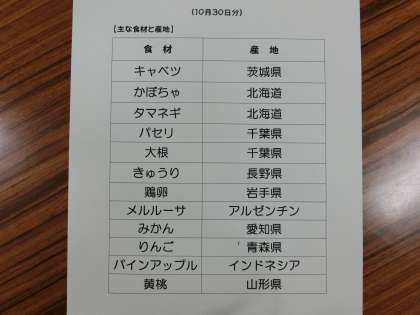 (10月30日分)
【主な食材と産地】
食 材 産 地
キャベツ 茨城県
かぼちゃ 北海道
タマネギ 北海道
パセリ 千葉県
大根 千葉県
きゅうり 長野県
鶏卵 岩手県
メルルーサ アルゼンチン
みかん 愛知県
りんご 青森県
パインアップル インドネシア
黄桃 山形県